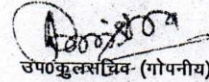 उप०कुलसचिव- (गोपनीय)